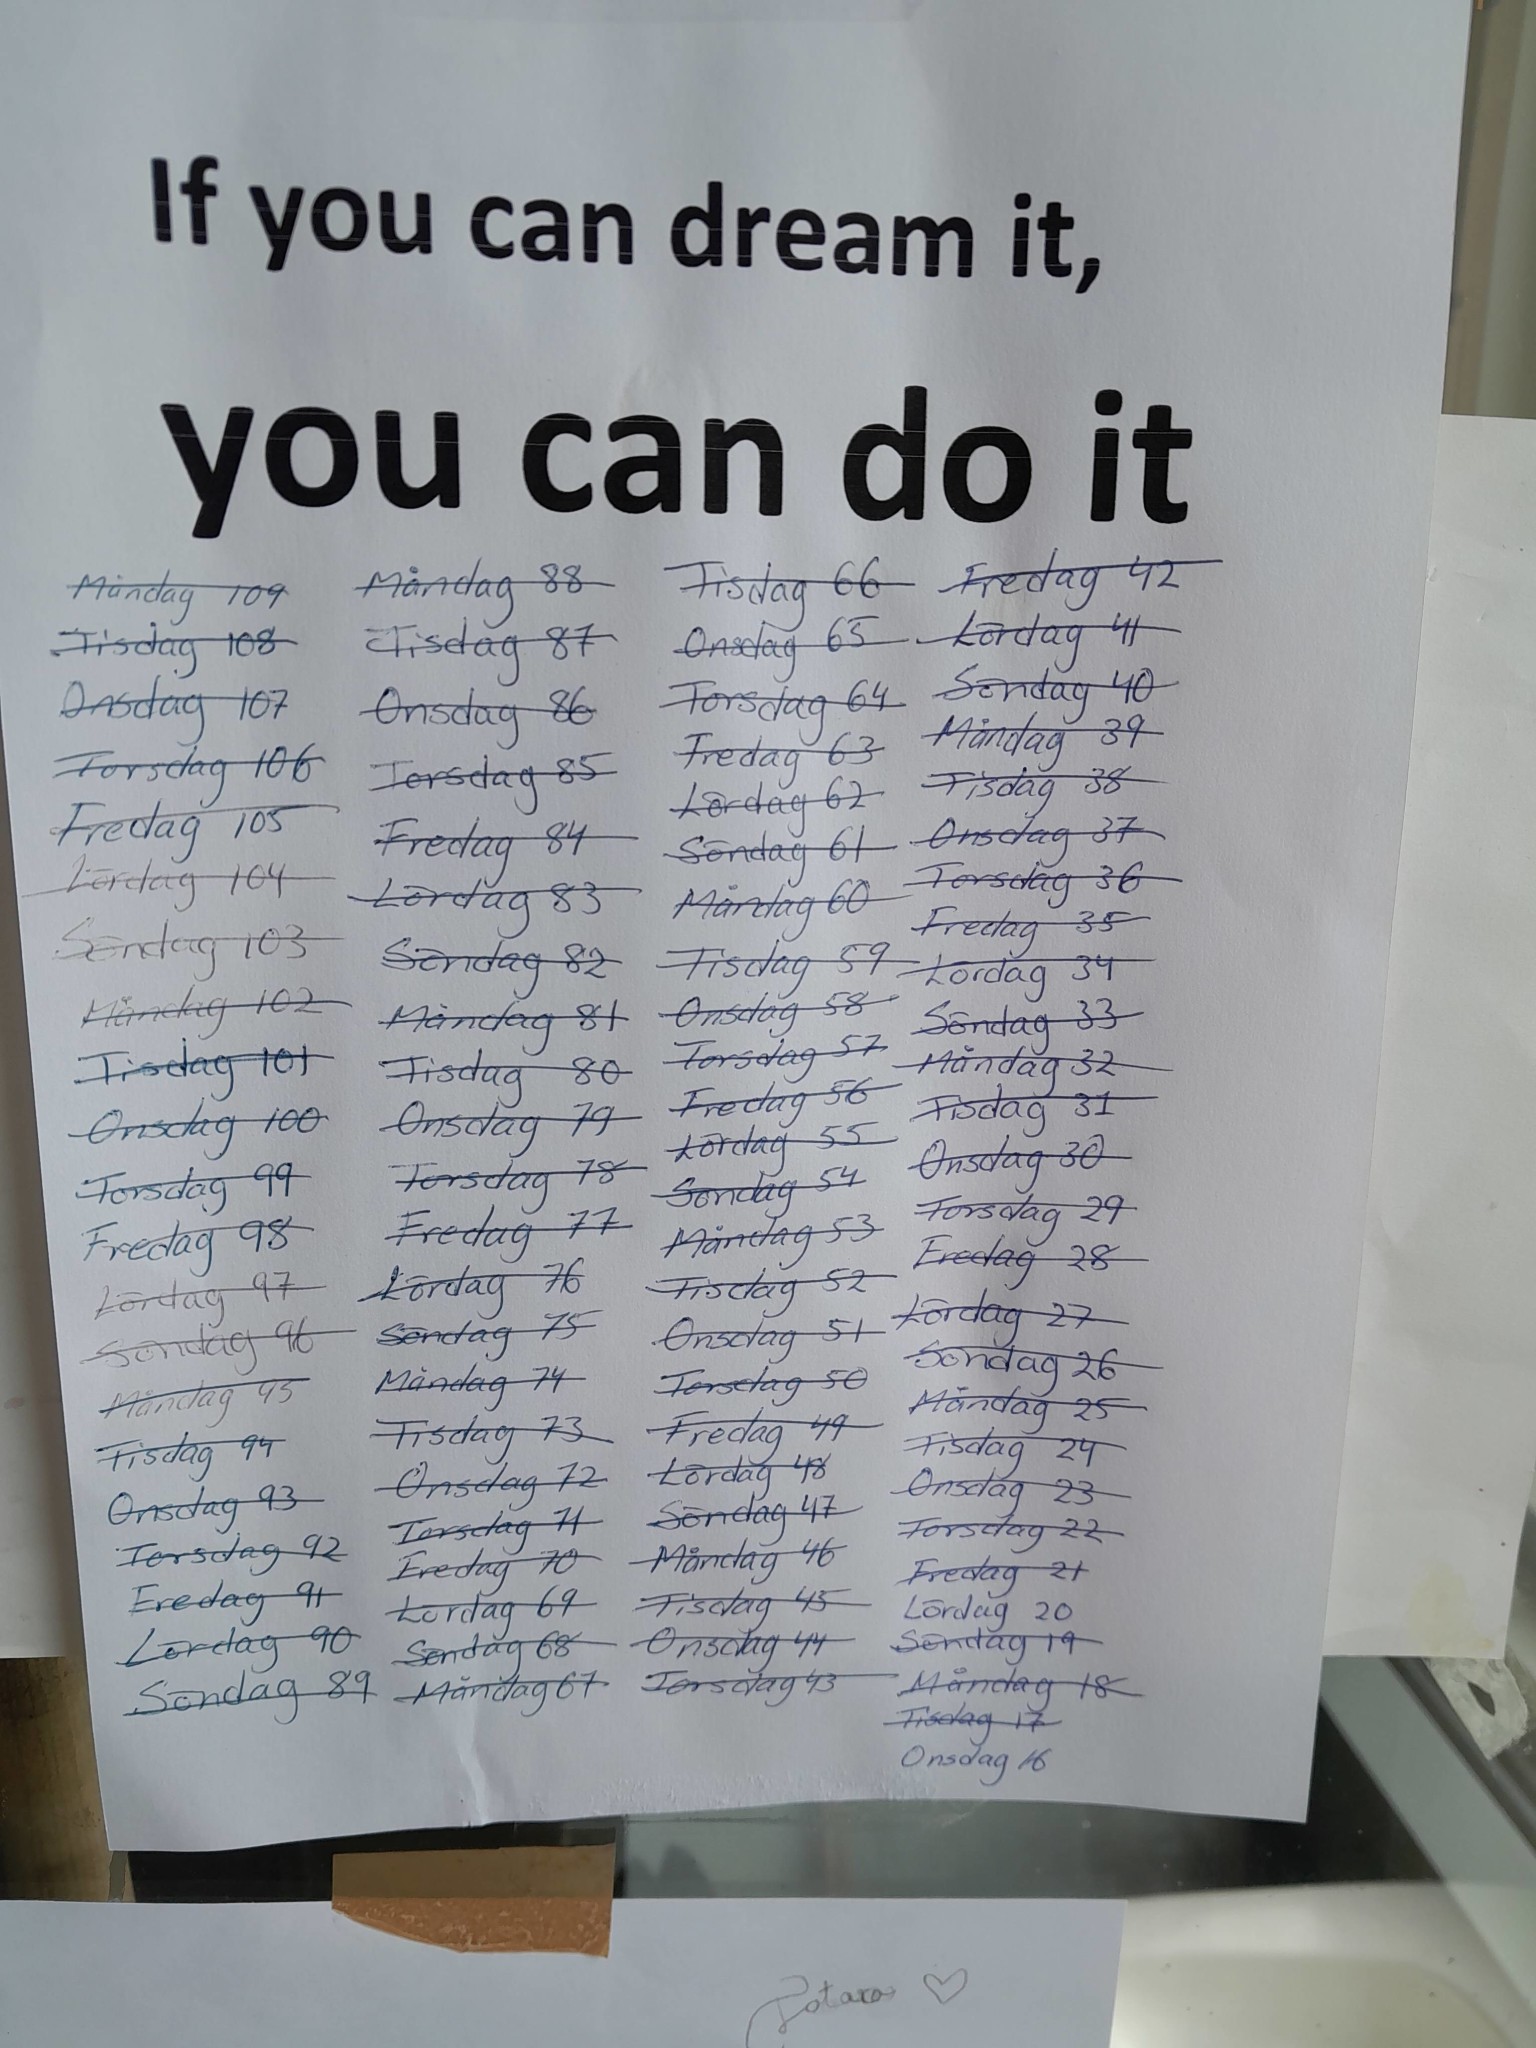 If you can dream it,
you can do it
Måndag 109
Tisdag 108
Onsdag 107
Torsdag 106
Fredag 105
Lördag 104
Söndag 103
Måndag 102
Tisdag 101
Onsdag 100
Torsdag 99
Fredag 98
Lördag 97
Söndag 96
Måndag 95
Tisdag 94
Onsdag 93
Torsdag 92
Fredag 91
Lördag 90
Söndag 89
Måndag 88
Tisdag 87
Onsdag 86
Torsdag 85
Fredag 84
Lördag 83
Söndag 82
Måndag 81
Tisdag 80
Onsdag 79
Torsdag 78
Fredag 77
Lördag 76
Söndag 75
Måndag 74
Tisdag 73
Onsdag 72
Torsdag 71
Fredag 70
Lördag 69
Söndag 68
Måndag 67
Tisdag 66
Onsdag 65
Torsdag 64
Fredag 63
Lördag 62
Söndag 61
Måndag 60
Tisdag 59
Onsdag 58
Torsdag 57
Fredag 56
Lördag 55
Söndag 54
Måndag 53
Tisdag 52
Onsdag 51
Torsdag 50
Fredag 49
Lördag 48
Söndag 47
Måndag 46
Tisdag 45
Onsdag 44
Torsdag 43
Fredag 42
Lördag 41
Söndag 40
Måndag 39
Tisdag 38
Onsdag 37
Torsdag 36
Fredag 35
Lördag 34
Söndag 33
Måndag 32
Tisdag 31
Onsdag 30
Torsdag 29
Fredag 28
Lördag 27
Söndag 26
Måndag 25
Tisdag 24
Onsdag 23
Torsdag 22
Fredag 21
Lördag 20
Söndag 19
Måndag 18
Tisdag 17
Onsdag 16